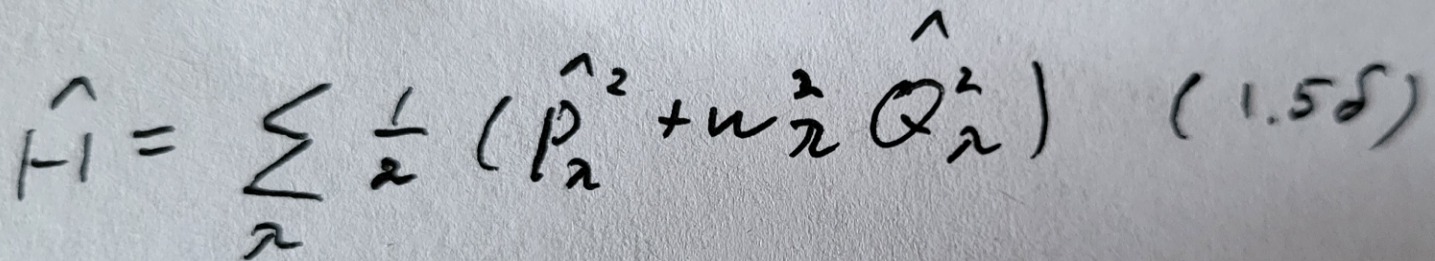 Ĥ = Σ_λ 1/2 (P̂_λ² + ω_λ² Q̂_λ²) (1.58)